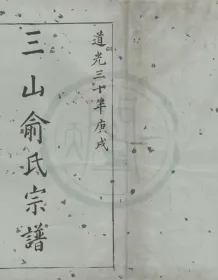 道光三十年庚戌
三山俞氏宗譜